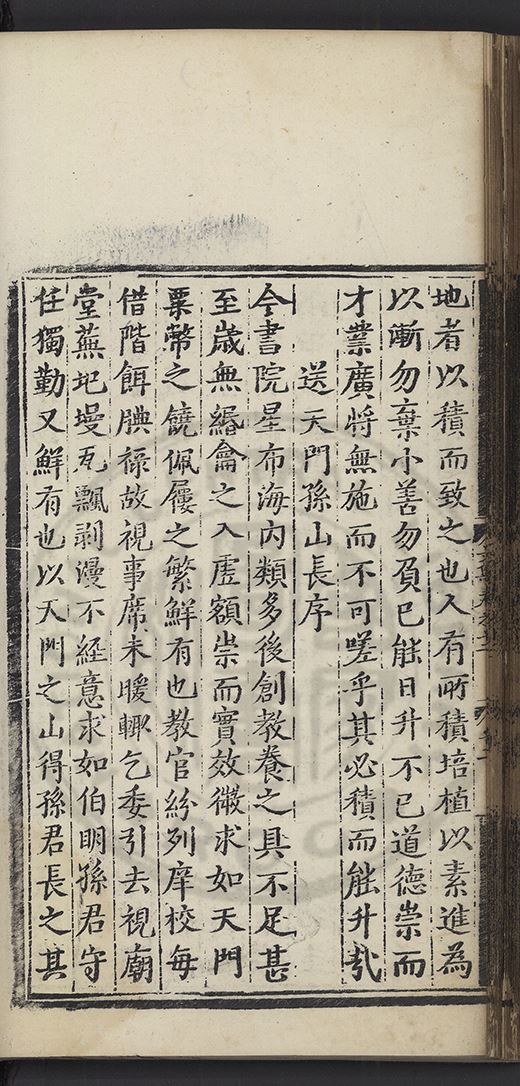 地者以積而致之也人有所積培植以素進為
以漸勿棄小善勿負已能日升不已道德崇而
才業廣將無施而不可嗟乎其必積而能升哉
送天門孫山長序
今書院星布海内類多後創教養之具不足甚
至歲無緡龠之入虗額崇而實效微求如天門
粟幣之饒佩屨之繁鮮有也教官紛列庠校每
借階餌腆祿故視事席未暖輙乞委引去視廟
堂蕪圯墁瓦飄剥漫不經意求如伯明孫君守
任獨勤又鮮有也以天門之山得孫君長之其